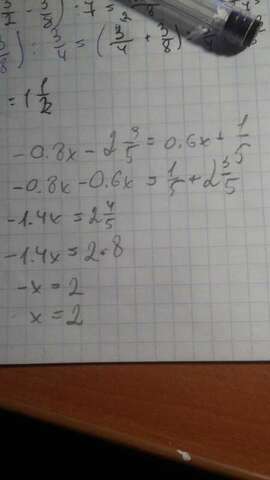 : 3/4 = (3/4 + 3/8)
= 1 1/2
-0.8x - 2 3/5 = 0.6x + 1/5
-0.8x - 0.6x = 1/5 + 2 3/5
-1.4x = 2 4/5
-1.4x = 2.8
-x = 2
x = 2